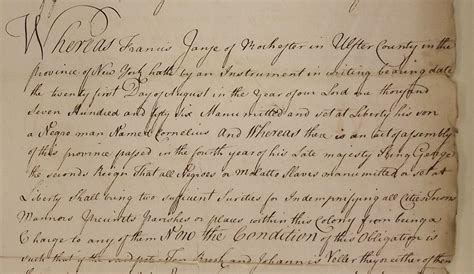 Whereas Francis Jansz of Rochester in Ulster County in the
province of New York hath by an Instrument in writing bearing date
the twenty first Day of August in the year of our Lord one thousand
Seven Hundred and fifty six Manumitted and set at Liberty his son
a Negro man Named Cornelius And Whereas there is an Act of assembly
of this province passed in the fourth year of his Late majesty King George
the second's Reign That all Negroes or Malatto Slaves manumitted & set at
Liberty Shall bring two sufficient Surities for Indempnifying all Cities Towns
Mannors Precincts Parishes or places within this Colony from being a
Charge to any of them Now the Condition of this Obligation is
such that if the said and Johannes they or either of them